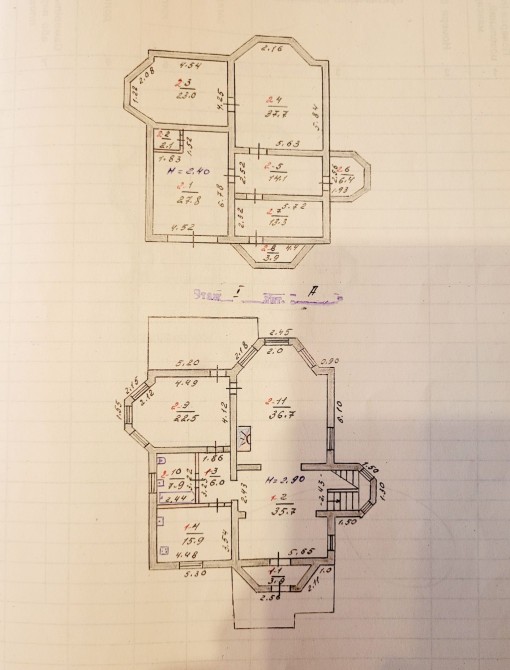 2.16
4.54
2.08
1.22
2.3
23.0
4.25
2.4
37.7
5.84
2.2
2.1
1.52
1.63
5.63
H = 2.40
2.52
2.5
14.1
2.6
6.4
1.93
2.1
27.8
6.78
5.72
2.52
2.7
13.3
4.52
2.8
3.9
4.4
Этаж I Лит. А
2.45
2.18
2.0
2.90
5.20
4.49
2.15
2.12
1.55
2.9
22.5
4.12
2.11
36.7
8.10
1.86
10
7.9
1.3
6.0
H = 2.90
1.50
1.50
2.43
2.43
2.44
1.2
35.7
1.50
1.4
15.9
3.54
4.48
5.30
5.65
1.1
3.8
1.0
2.11
2.56